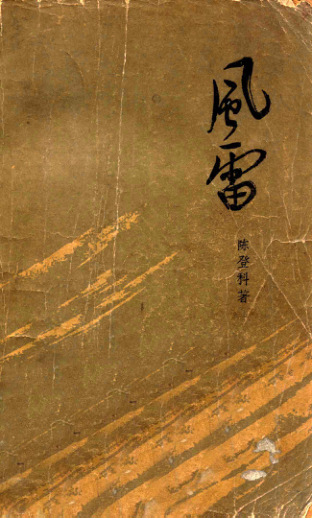 風雷
陈登科著